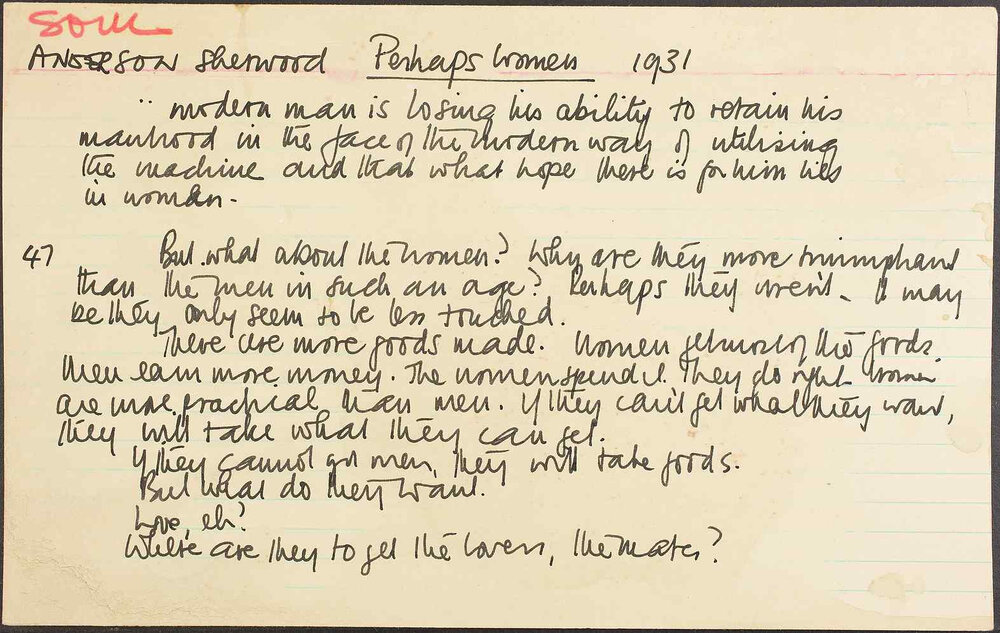 SOUL
ANDERSON Sherwood Perhaps Women 1931
" modern man is losing his ability to retain his
manhood in the face of the modern way of utilising
the machine and that what hope there is for him lies
in woman -
47 But what about the women? Why are they more triumphant
than the men in such an age? Perhaps they aren't - It may
be they only seem to be less touched.
There are more goods made. Women get most of the goods.
Men earn more money. The women spend it. They do right. Women
are more practical than men. If they can't get what they want,
they will take what they can get.
If they cannot get men, they will take goods.
But what do they want.
Love, eh?
Where are they to get the lovers, the mates?